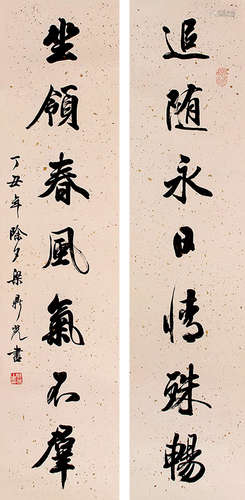 追随永日情殊畅
坐领春风气不群
丁丑年除夕梁鼎光書